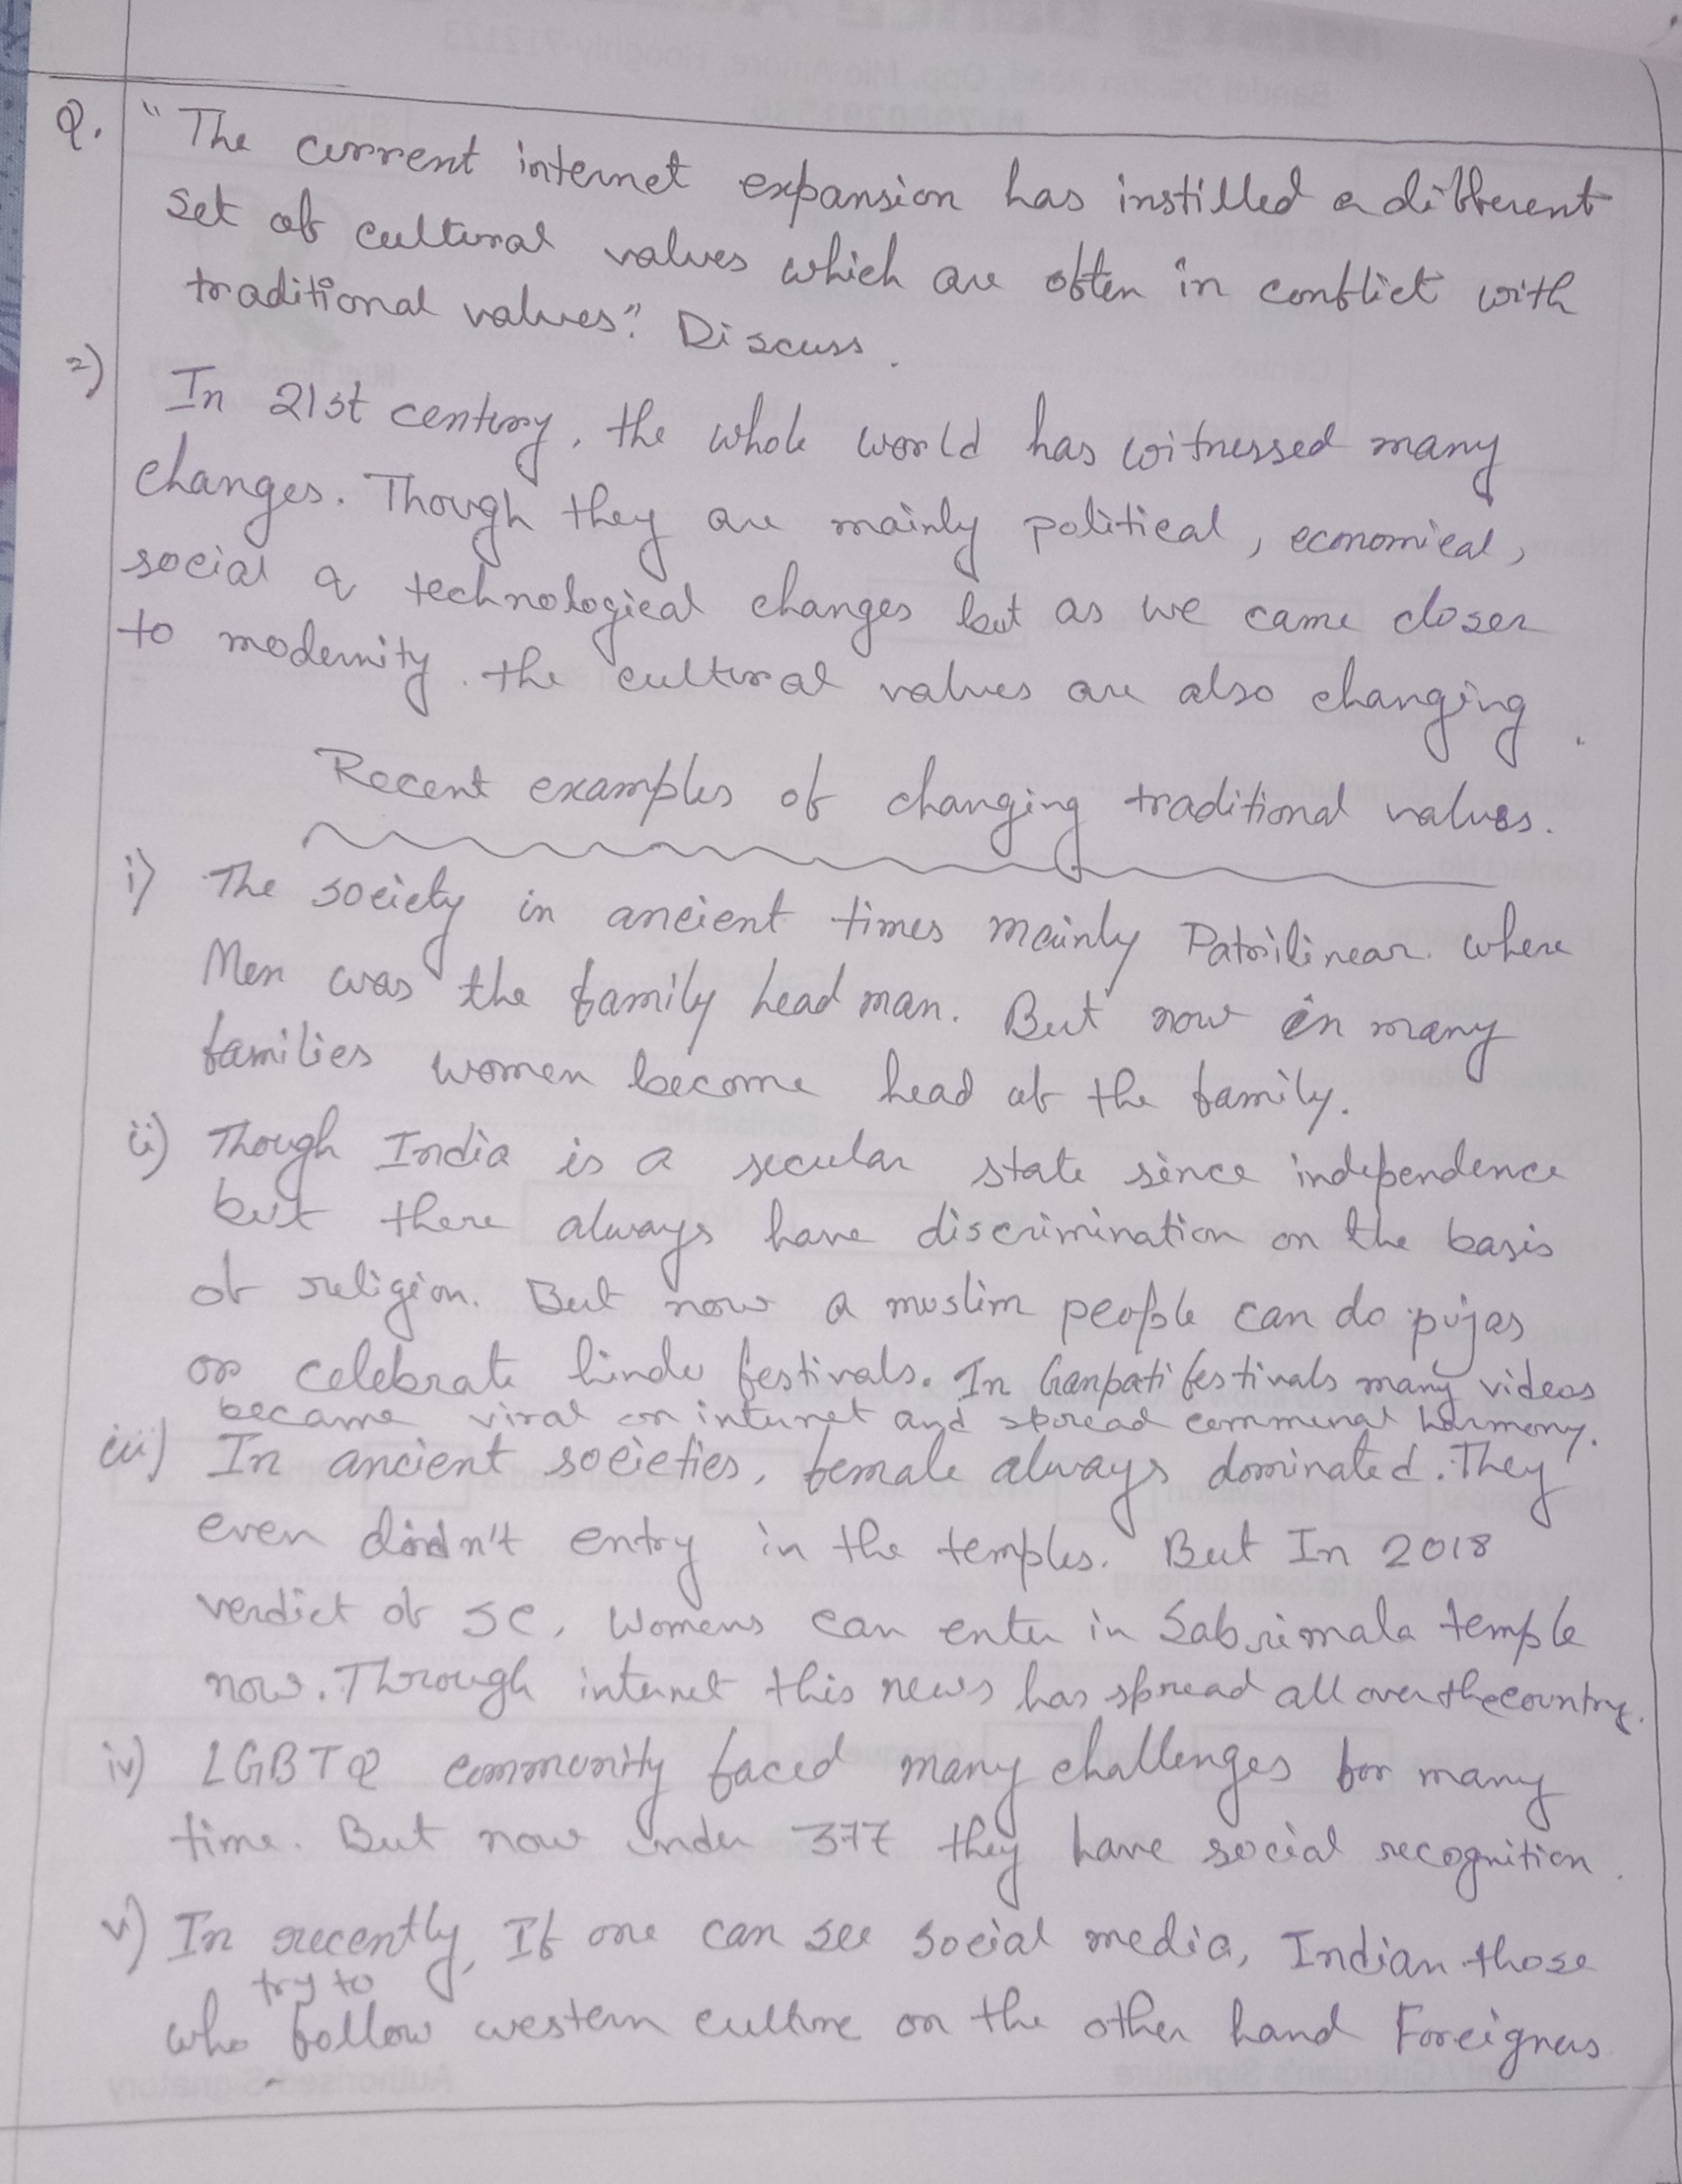 Q. "The current internet expansion has instilled a different
set of cultural values which are often in conflict with
traditional values". Discuss.
2) In 21st century, the whole world has witnessed many
changes. Though they are mainly political, economical,
social & technological changes but as we came closer
to modernity. the cultural values are also changing.
Recent examples of changing traditional values.
i) The society in ancient times mainly Patrilinear. where
Men was the family head man. But now in many
families women become head of the family.
ii) Though India is a secular state since independence
but there always have discrimination on the basis
of religion. But now a muslim people can do pujas
or celebrate hindu festivals. In Ganpati festivals many videos
became viral on internet and spread communal harmony.
iii) In ancient societies, female always dominated. They
even didn't entry in the temples. But In 2018
verdict of SC, Womens can enter in Sabrimala temple
now. Through internet this news has spread all over the country.
iv) LGBTQ community faced many challenges for many
time. But now under 377 they have social recognition.
v) In recently, If one can see social media, Indian those
who try to follow western culture on the other hand Foreigners